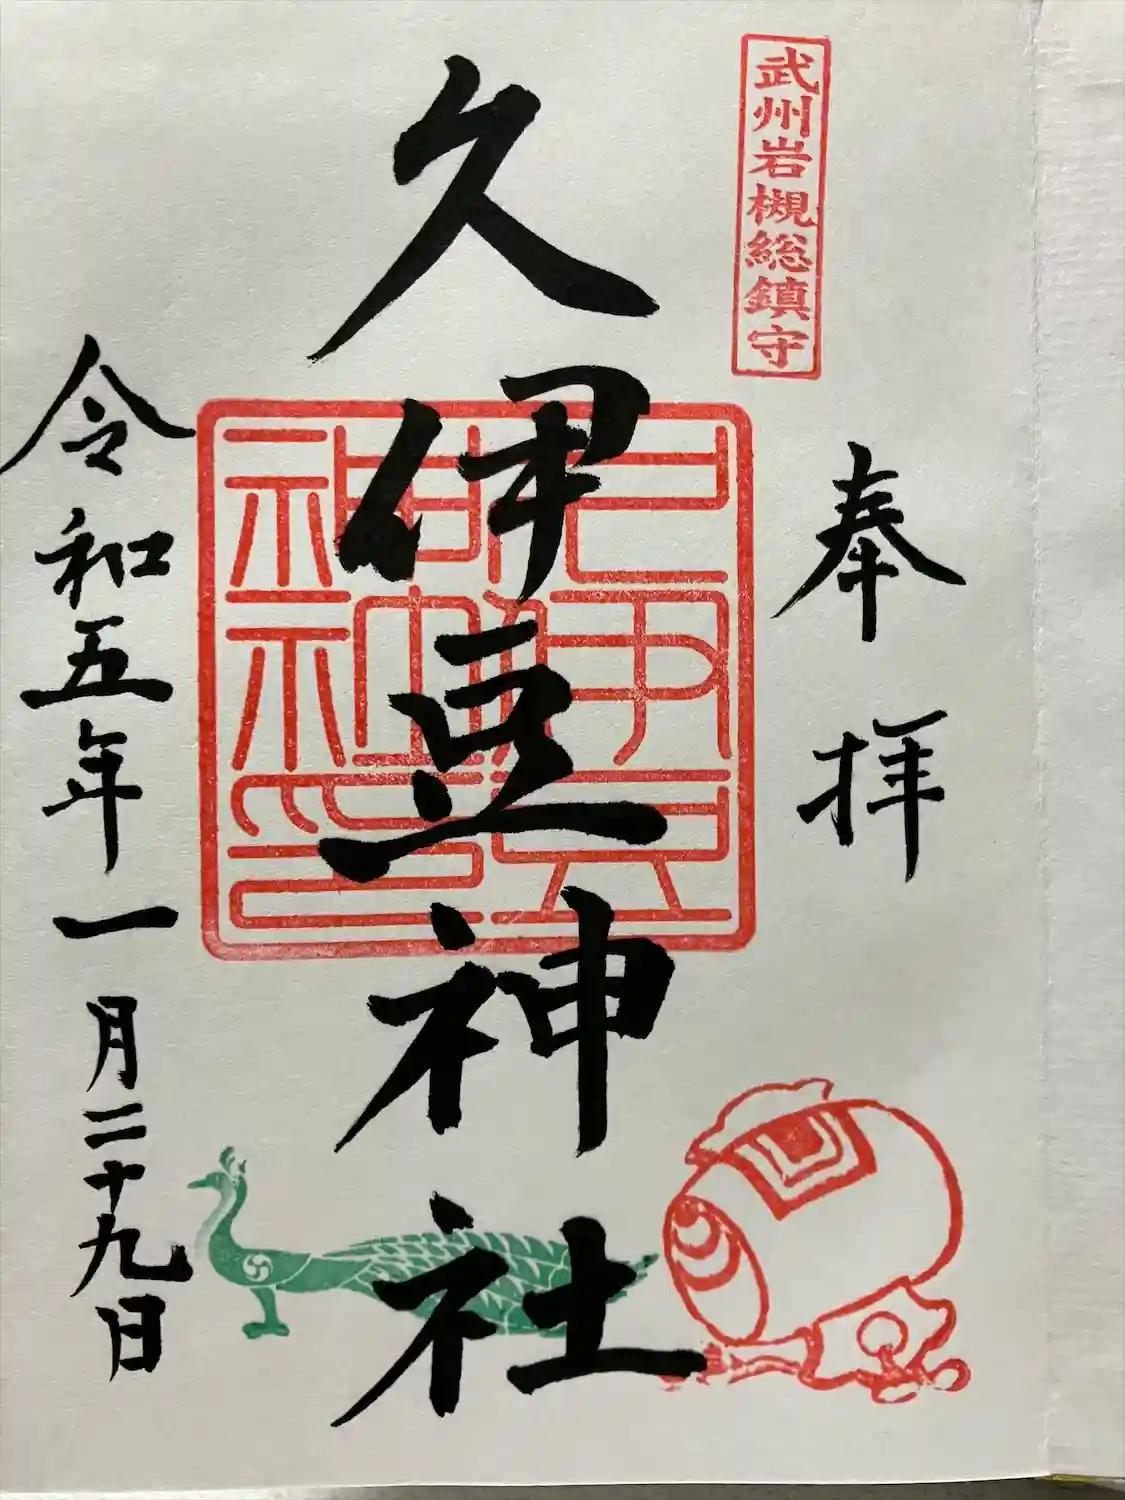 武州岩槻総鎮守
奉拝
久伊豆神社
久伊豆
神社印
令和五年一月二十九日